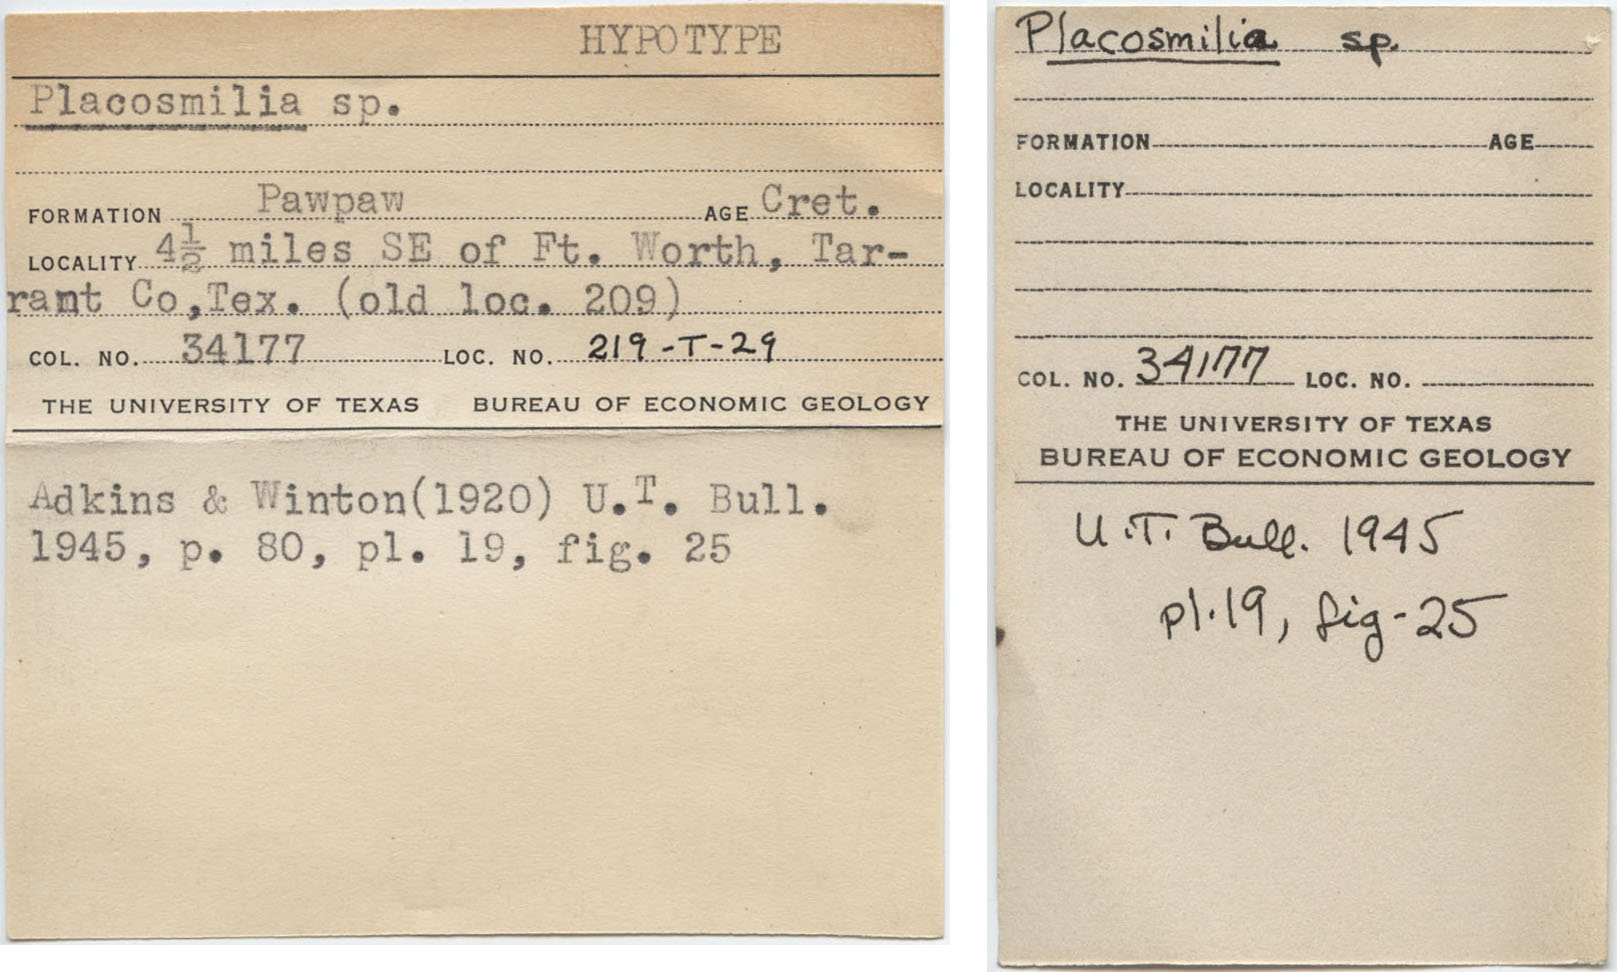 HYPOTYPE
Placosmilia sp.
FORMATION Pawpaw AGE Cret.
LOCALITY 4½ miles SE of Ft. Worth, Tar-
rant Co,Tex. (old loc. 209)
COL. NO. 34177 LOC. NO. 219-T-29
THE UNIVERSITY OF TEXAS BUREAU OF ECONOMIC GEOLOGY
Adkins & Winton(1920) U.T. Bull.
1945, p. 80, pl. 19, fig. 25
Placosmilia sp.
FORMATION AGE
LOCALITY
COL. NO. 34177 LOC. NO.
THE UNIVERSITY OF TEXAS
BUREAU OF ECONOMIC GEOLOGY
U.T. Bull. 1945
pl.19, fig-25